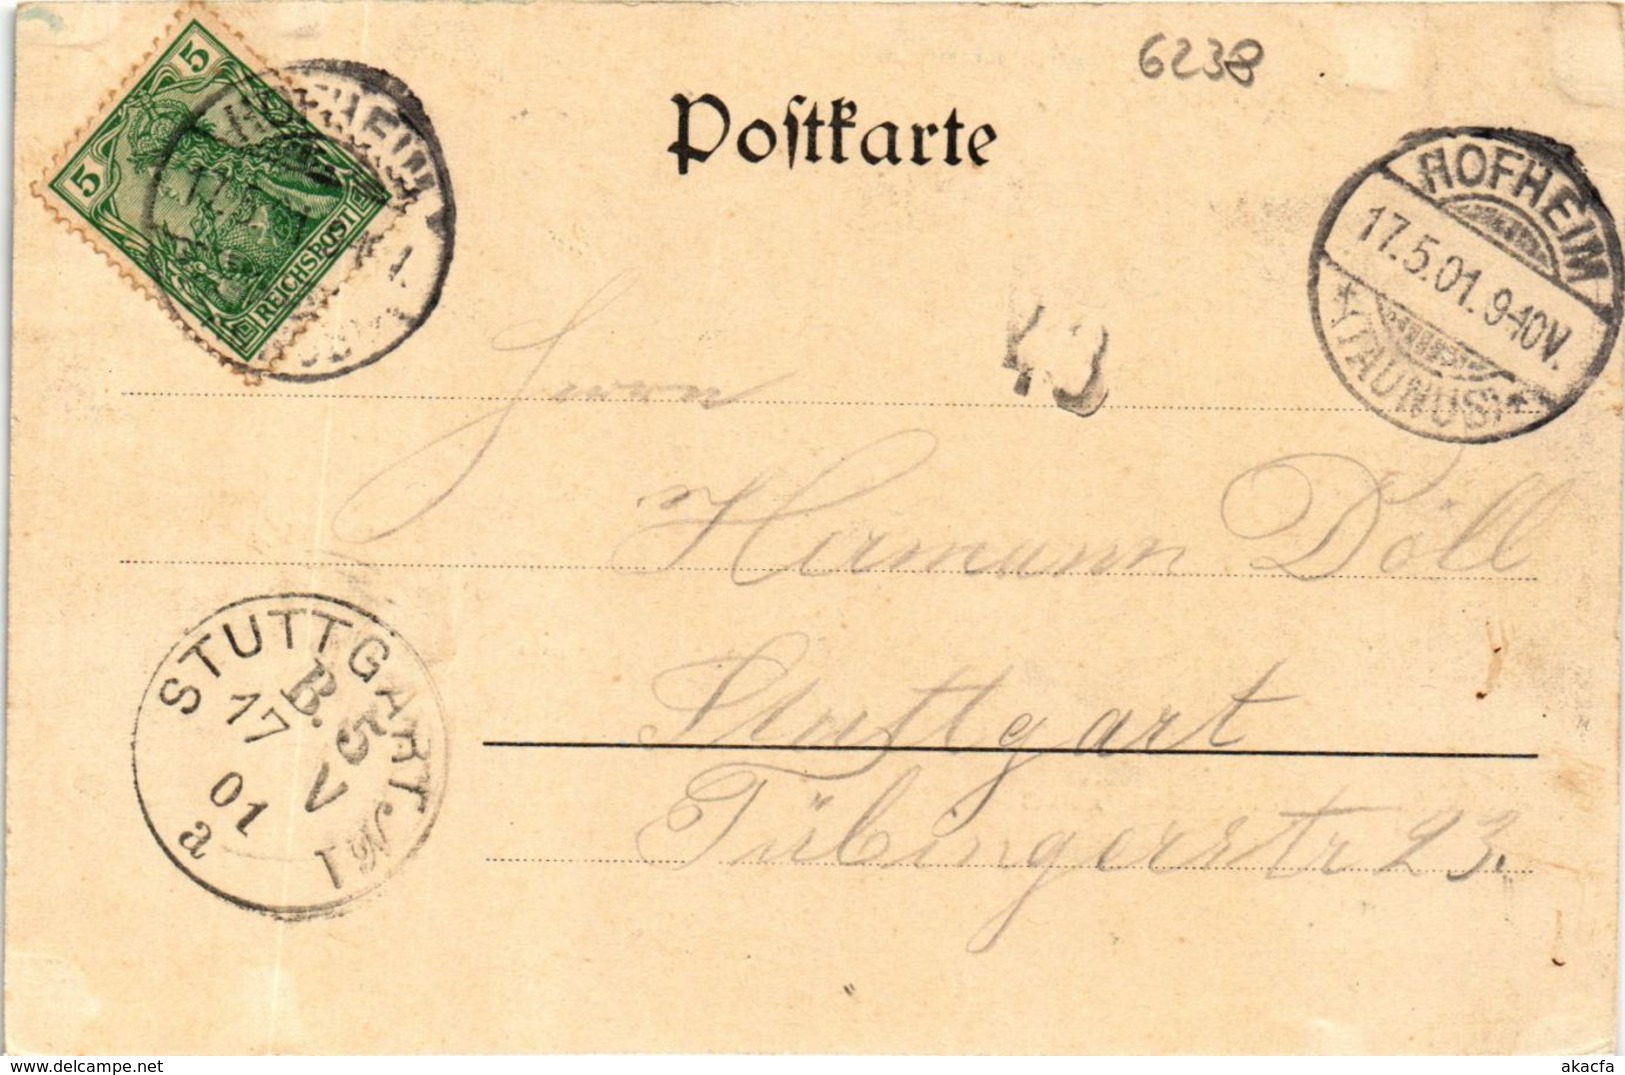 6238
Postkarte
5
5
REICHSPOST
HOFHEIM
17.5.01. 9-10V.
*(TAUNUS)*
43
Herrn
Hermann Döll
Stuttgart
Tübingerstr 23.
STUTTGART
B. 5
17 V
01
a
akacfa